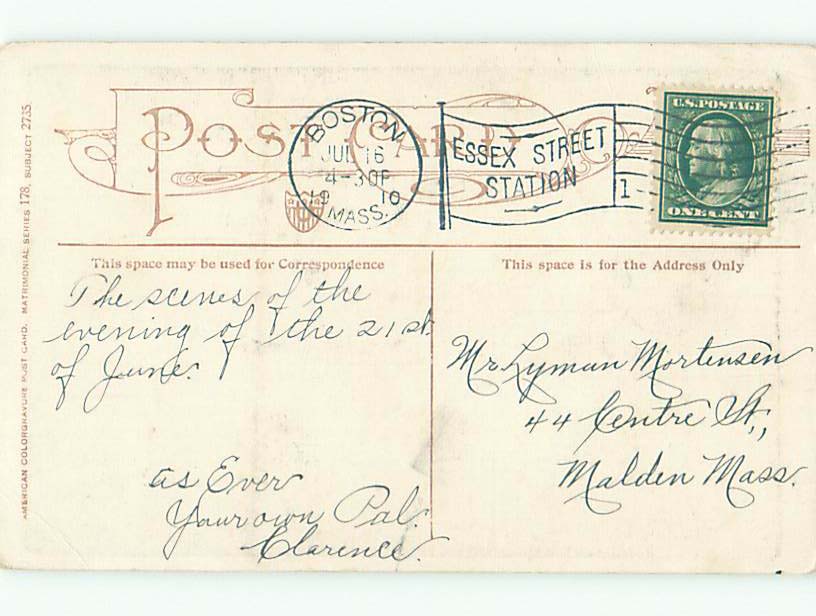 POST CARD
BOSTON
JUL 16
4-30P
19 10
MASS.
ESSEX STREET
STATION
1
U.S. POSTAGE
ONE CENT
AMERICAN COLORGRAVURE POST CARD. MATRIMONIAL SERIES 178, SUBJECT 2735
This space may be used for Correspondence
This space is for the Address Only
The scenes of the
evening of the 21st
of June.
as Ever
Your own Pal.
Clarence.
Mr Lyman Mortensen
44 Centre St.,
Malden Mass.